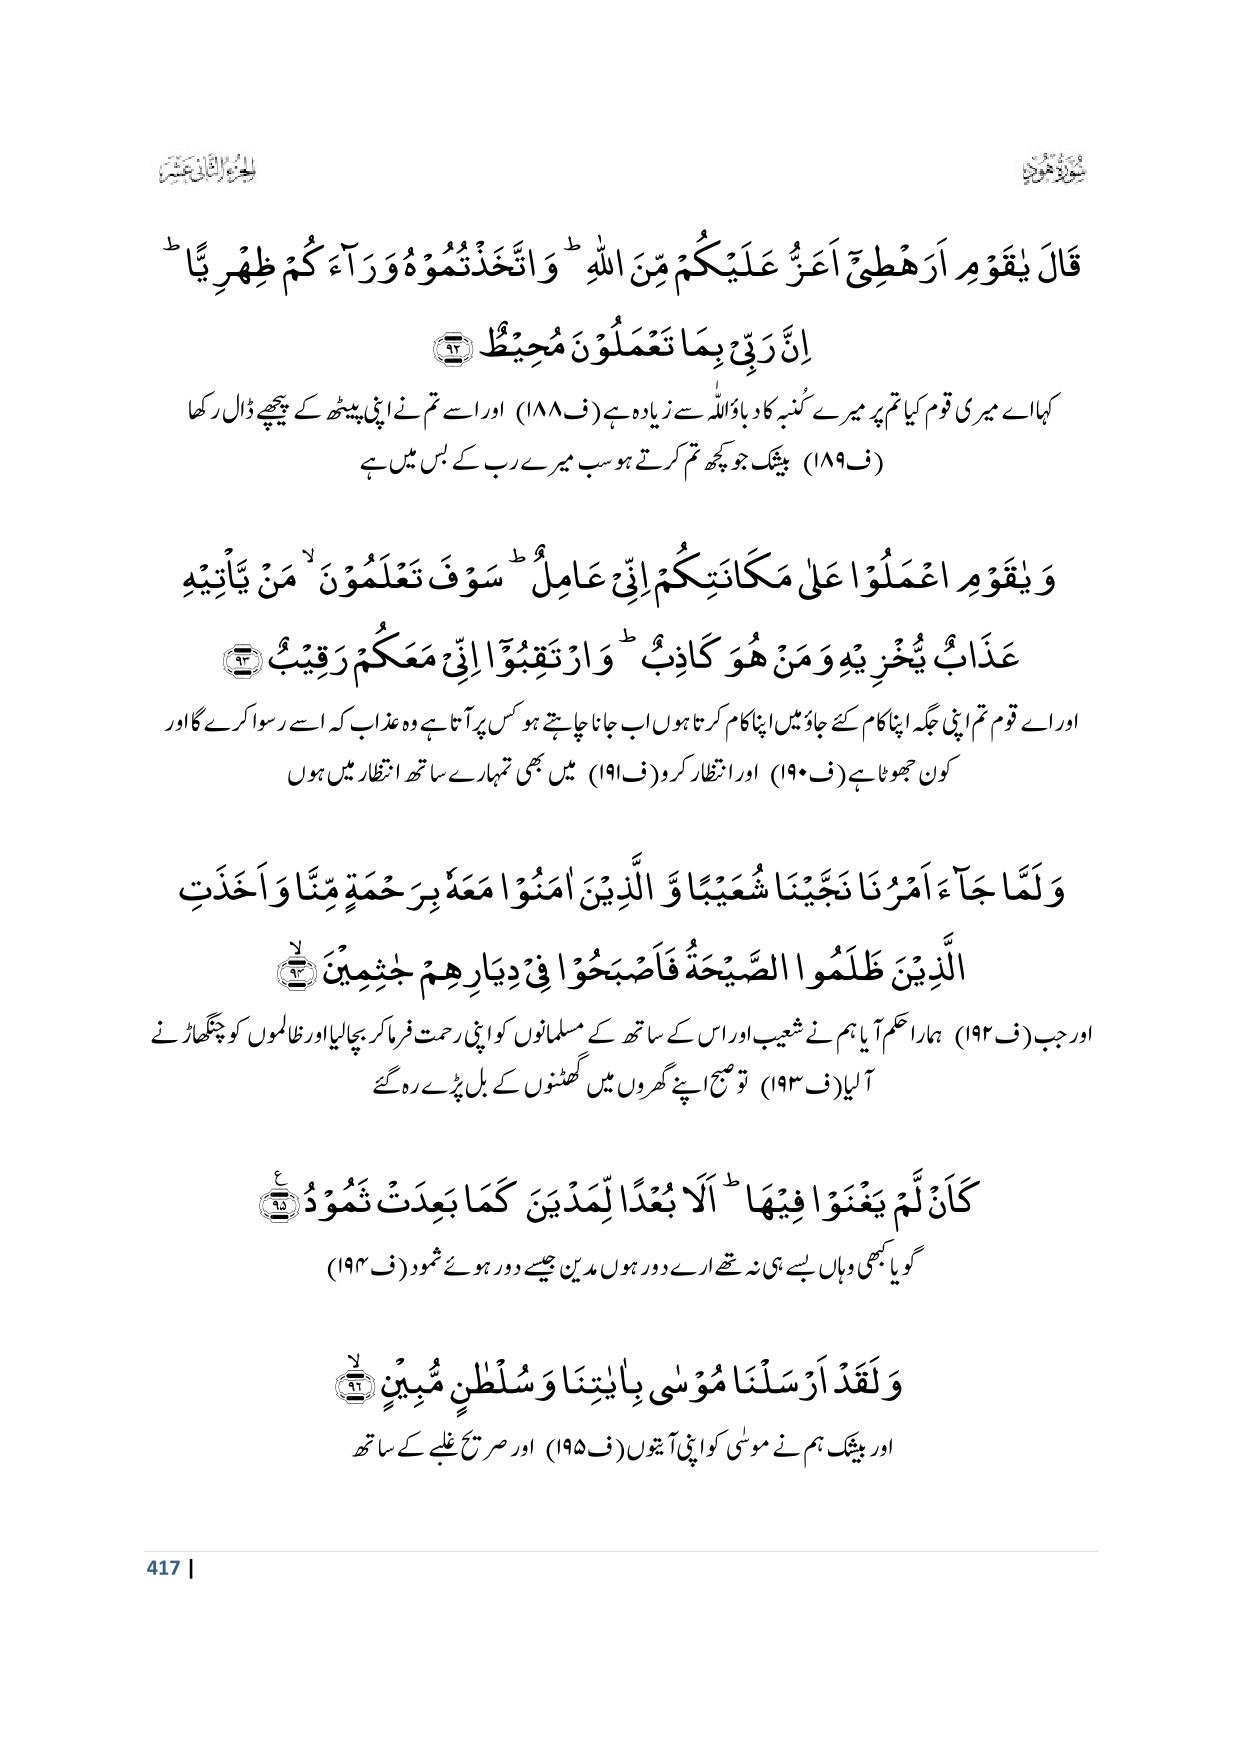 سُوْرَةُ هُوْدٍ
الجزء الثانی عشر
قَالَ یٰقَوْمِ اَرَهْطِیْۤ اَعَزُّ عَلَیْكُمْ مِّنَ اللّٰهِ ؕ وَ اتَّخَذْتُمُوْهُ وَرَآءَكُمْ ظِهْرِیًّا ؕ
اِنَّ رَبِّیْ بِمَا تَعْمَلُوْنَ مُحِیْطٌ ﴿۹۲﴾
کہا اے میری قوم کیا تم پر میرے کُنبہ کا دباؤ اللّٰہ سے زیادہ ہے (ف۱۸۸) اور اسے تم نے اپنی پیٹھ کے پیچھے ڈال رکھا
(ف۱۸۹) بیشک جو کچھ تم کرتے ہو سب میرے رب کے بس میں ہے
وَ یٰقَوْمِ اعْمَلُوْا عَلٰی مَكَانَتِكُمْ اِنِّیْ عَامِلٌ ؕ سَوْفَ تَعْلَمُوْنَ ۙ مَنْ یَّاْتِیْهِ
عَذَابٌ یُّخْزِیْهِ وَ مَنْ هُوَ كَاذِبٌ ؕ وَ ارْتَقِبُوْۤا اِنِّیْ مَعَكُمْ رَقِیْبٌ ﴿۹۳﴾
اور اے قوم تم اپنی جگہ اپنا کام کئے جاؤ میں اپنا کام کرتا ہوں اب جانا چاہتے ہو کس پر آتا ہے وہ عذاب کہ اسے رسوا کرے گا اور
کون جھوٹا ہے (ف۱۹۰) اور انتظار کرو (ف۱۹۱) میں بھی تمہارے ساتھ انتظار میں ہوں
وَ لَمَّا جَآءَ اَمْرُنَا نَجَّیْنَا شُعَیْبًا وَّ الَّذِیْنَ اٰمَنُوْا مَعَهٗ بِرَحْمَةٍ مِّنَّا وَ اَخَذَتِ
الَّذِیْنَ ظَلَمُوا الصَّیْحَةُ فَاَصْبَحُوْا فِیْ دِیَارِهِمْ جٰثِمِیْنَ ﴿ۙ۹۴﴾
اور جب (ف۱۹۲) ہمارا حکم آیا ہم نے شعیب اور اس کے ساتھ کے مسلمانوں کو اپنی رحمت فرما کر بچالیا اور ظالموں کو چنگھاڑ نے
آ لیا (ف۱۹۳) تو صبح اپنے گھروں میں گھٹنوں کے بل پڑے رہ گئے
كَاَنْ لَّمْ یَغْنَوْا فِیْهَا ؕ اَلَا بُعْدًا لِّمَدْیَنَ كَمَا بَعِدَتْ ثَمُوْدُ ﴿۹۵﴾ ع
گویا کبھی وہاں بسے ہی نہ تھے ارے دور ہوں مدین جیسے دور ہوئے ثمود (ف۱۹۴)
وَ لَقَدْ اَرْسَلْنَا مُوْسٰی بِاٰیٰتِنَا وَ سُلْطٰنٍ مُّبِیْنٍ ﴿ۙ۹۶﴾
اور بیشک ہم نے موسٰی کو اپنی آیتوں (ف۱۹۵) اور صریح غلبے کے ساتھ
417 |